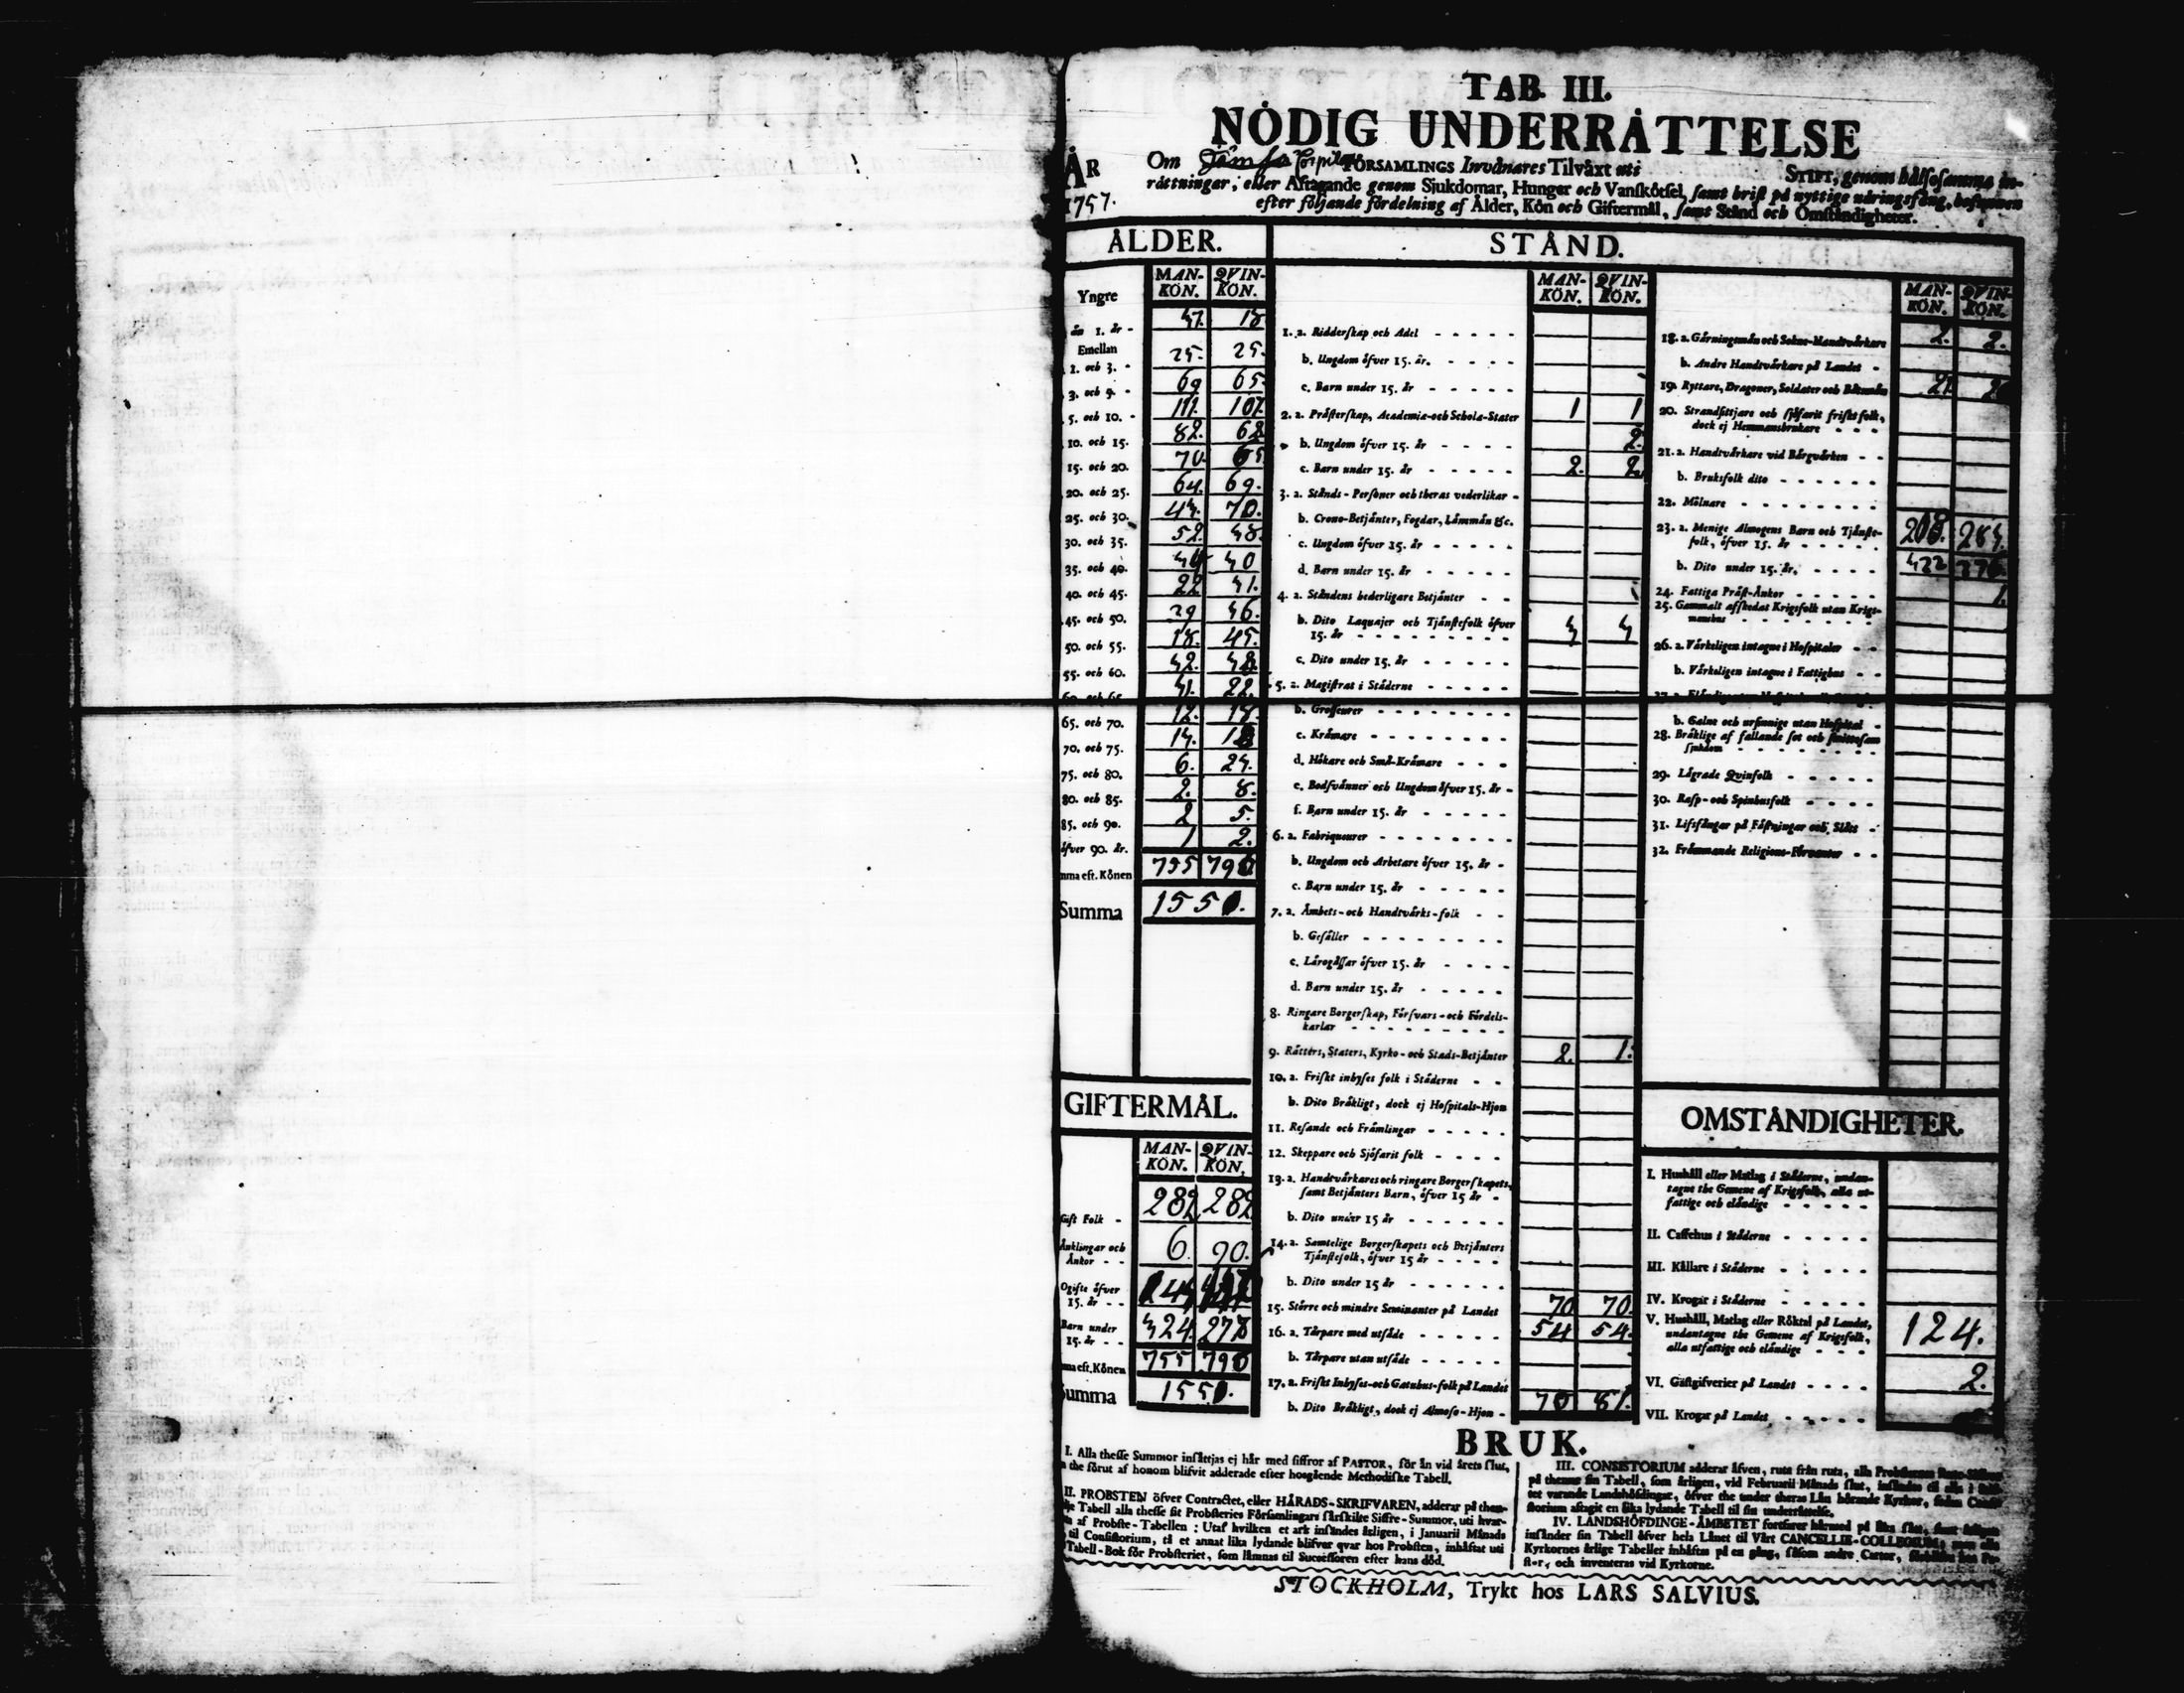 TAB. III.
NÖDIG UNDERRÄTTELSE
ÅR
1757.
Om FÖRSAMLINGS Invånares Tilväxt uti STIFT, genom hälsosamma in-
rättningar, eller Aftagande genom Sjukdomar, Hunger och Vanskötsel, samt brist på nyttige näringsfång, befunnen
efter följande fördelning af Ålder, Kön och Giftermål, samt Stånd och Omständigheter.
ÅLDER.
MAN-KÖN. QVIN-KÖN.
Yngre
än 1. år - 47. 18
Emellan
1. och 3. - 25. 25.
3. och 5. - 69 65.
5. och 10. - 111. 107.
10. och 15. 82. 62
15. och 20. 70. 65
20. och 25. 64. 69.
25. och 30. 44. 70.
30. och 35. 52. 48.
35. och 40. 40
40. och 45. 22 41.
45. och 50. 29 46.
50. och 55. 18. 45.
55. och 60. 42. 48.
60. och 65. 41. 22.
65. och 70. 12. 18.
70. och 75. 14. 18
75. och 80. 6. 24.
80. och 85. 2. 8.
85. och 90. 2 5.
öfver 90. år. 1 2.
mma eft. Könen 755 790
Summa 1550.
GIFTERMÅL.
MAN-KÖN. QVIN-KÖN.
Gift Folk - 282 282
Änklingar och
Änkor - - 6. 90.
Ogifte öfver
15. år - -
Barn under
15. år - - 424. 278
ma eft. Könen 755 790
Summa 1550.
STÅND.
MAN-KÖN. QVIN-KÖN.
1. a. Ridderskap och Adel
b. Ungdom öfver 15. år.
c. Barn under 15. år
2. a. Prästerskap, Academiæ- och Scholæ-Stater 1 1
b. Ungdom öfver 15. år 2.
c. Barn under 15. år 2. 2.
3. a. Stånds-Personer och theras vederlikar
b. Crono-Betjänter, Fogdar, Länsmän &c.
c. Ungdom öfver 15. år
d. Barn under 15. år
4. a. Ståndens hederligare Betjänter
b. Dito Laquajer och Tjänstefolk öfver
15. år 4 4
c. Dito under 15. år
5. a. Magistrat i Städerne
b. Grosseurer
c. Krämare
d. Hökare och Små-Krämare
e. Bodsvänner och Ungdom öfver 15. år
f. Barn under 15. år
6. a. Fabriqueurer
b. Ungdom och Arbetare öfver 15. år
c. Barn under 15. år
7. a. Ämbets- och Handtvärks-folk
b. Gesäller
c. Lärogåssar öfver 15. år
d. Barn under 15. år
8. Ringare Borgerskap, Försvars- och Fördels-
karlar
9. Rätters, Staters, Kyrko- och Stads-Betjänter 2. 1.
10. a. Friskt inhyses folk i Städerne
b. Dito Bräkligt, dock ej Hospitals-Hjon
11. Resande och Främlingar
12. Skeppare och Sjöfarit folk
13. a. Handtvärkares och ringare Borgerskapets,
samt Betjänters Barn, öfver 15 år
b. Dito under 15 år
14. a. Samtelige Borgerskapets och Betjänters
Tjänstefolk, öfver 15 år
b. Dito under 15 år
15. Större och mindre Seminanter på Landet 70 70.
16. a. Tårpare med utsäde 54 54.
b. Tårpare utan utsäde
17. a. Friskt Inhyses- och Gatuhus-folk på Landet
b. Dito Bräkligt, dock ej Almoso-Hjon 70 81.
MAN-KÖN. QVIN-KÖN.
18. a. Gärningsmän och Sokne-Handtvärkare 2. 2.
b. Andre Handtvärkare på Landet
19. Ryttare, Dragoner, Soldater och Båtsmän 21
20. Strandsittjare och sjöfarit friskt folk,
dock ej Hemmansbrukare
21. a. Handtvärkare vid Bärgvärken
b. Bruksfolk dito
22. Mölnare
23. a. Menige Almogens Barn och Tjänste-
folk, öfver 15. år 284.
b. Dito under 15. år. 422 276.
24. Fattiga Präst-Änkor 1.
25. Gammalt afskedat Krigsfolk utan Krigs-
mansbus
26. a. Värkeligen intagne i Hospitaler
b. Värkeligen intagne i Fattighus
b. Galne och ursinnige utan Hospital
28. Bräklige af fallande sot och smittosam
sjukdom
29. Lägrade Qvinfolk
30. Rasp- och Spinhusfolk
31. Lifsfångar på Fästningar och Slått
32. Främmande Religions-Förvanter
OMSTÄNDIGHETER.
I. Hushåll eller Matlag i Städerne, undan-
tagne the Gemene af Krigsfolk, alla ut-
fattige och eländige
II. Caffehus i Städerne
III. Källare i Städerne
IV. Krogar i Städerne
V. Hushåll, Matlag eller Röktal på Landet,
undantagne the Gemene af Krigsfolk,
alla utfattige och eländige 124.
VI. Gästgifverier på Landet 2.
VII. Krogar på Landet
BRUK.
I. Alla thesse Summor insättjas ej här med siffror af PASTOR, för än vid årets slut,
the förut af honom blifvit adderade efter hosgående Methodiske Tabell.
II. PROBSTEN öfver Contractet, eller HÄRADS-SKRIFVAREN, adderar på then-
Tabell alla thesse sit Probsteries Församlingars särskilte Siffre-Summor, uti hvar-
af Probste-Tabellen: Utaf hvilken et ark insändes årligen, i Januarii Månads
til Consistorium, tå et annat lika lydande blifver qvar hos Probsten, inhäftat uti
Tabell-Bok för Probsteriet, som lämnas til Successoren efter hans död.
III. CONSISTORIUM adderar äfven, ruta från ruta, alla
på thenne sin Tabell, som årligen, vid Februarii Månads slut,
varande Landshöfdingar, öfver the under theras Län hörande Kyrkor,
storium aftagit en lika lydande Tabell til sin underrättelse.
IV. LANDSHÖFDINGE-ÄMBETET fortfarer härmed på lika sätt,
insänder sin Tabell öfver hela Länet til Vårt CANCELLIE-COLLEGIUM;
Kyrkornes årlige Tabeller inhäftas på en gång, såsom andre Cartor,
och inventeras vid Kyrkorne.
STOCKHOLM, Trykt hos LARS SALVIUS.